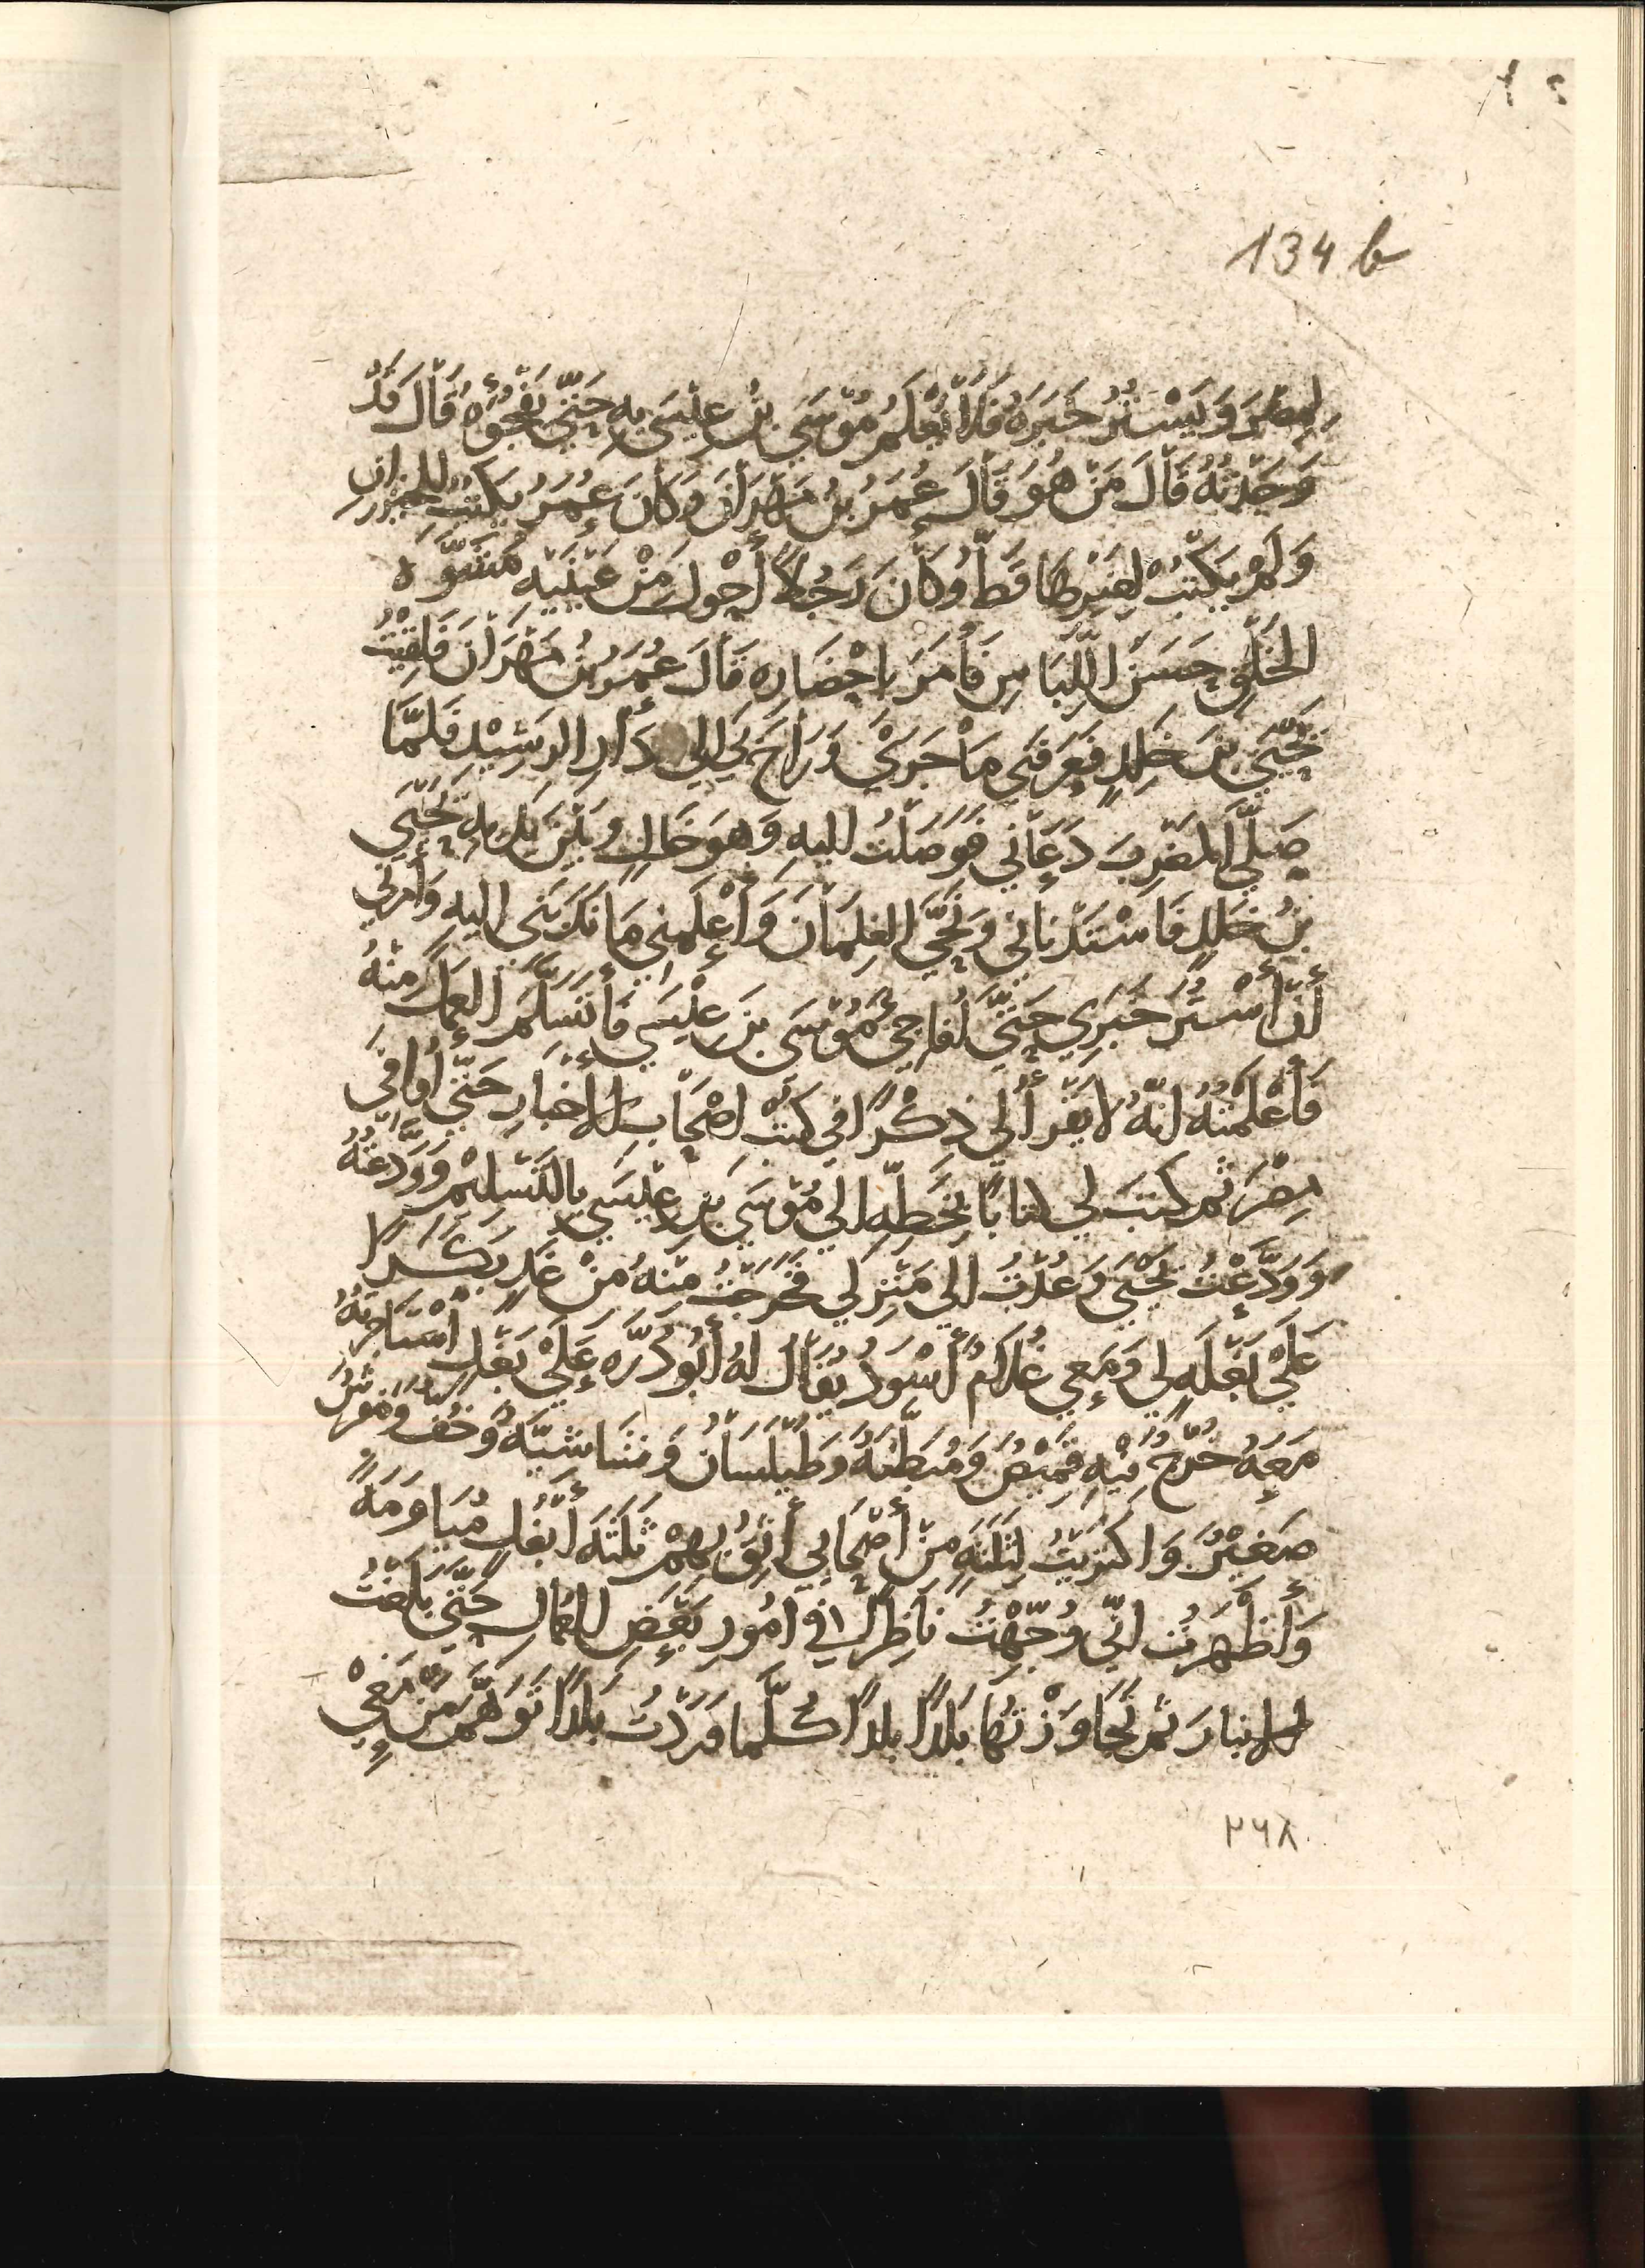 134 b
لِمِصْرَ وَيَسْتُرُ خَبَرَهُ فَلَا يَعْلَمُ مُوْسَى بْنُ عِيْسَى بِهِ حَتَّى يَفْجُؤَهُ قَالَ قَدْ
وَجَدْتُهُ قَالَ مَنْ هُوَ قَالَ عُمَرُ بْنُ مَهْرَانَ وَكَانَ عُمَرُ يَكْتُبُ للخيزران
وَلَمْ يَكْتُبْ لِغَيْرِهَا قَطُّ وَكَانَ رَجُلًا أَحْوَلَ مِنْ عَيْنَيْهِ مُشَوَّهَ
الخَلْقِ حَسَنَ اللِّبَاسِ فَأَمَرَ بِإِحْضَارِهِ قَالَ عُمَرُ بْنُ مَهْرَانَ فَلَقِيْتُ
يَحْيَى بْنَ خَلِدٍ فَعَرَّفَنِي مَا جَرَى وَرَاحَ بِي إِلى دَارِ الرَشِيْدِ فَلَمَّا
صَلَّى المَغْرِبَ دَعَانِي فَوَصَلْتُ اليهِ وَهُوَ خَالٍ وَبَيْنَ يَدَيْهِ يَحْيَى
بْنُ خَلِدٍ فَاسْتَدْنَانِي وَنَحَّى الغِلمَانَ وَأَعْلَمَنِي مَا نَدَبَنِي اليهِ وَأَمَرَنِي
أَنْ أَسْتُرَ خَبَرِي حَتَّى أُفَاجِئَ مُوْسَى بْنَ عِيْسَى فَأَتَسَلَّمَ العَمَلَ مِنْهُ
فَأَعْلَمْتُهُ انَّهُ لَا يَقْرَأُ لِي ذِكْرًا فِي كُتُبِ اصْحَابِ الاخبَارِ حَتَّى أُوَافِيَ
مِصْرَ ثُمَّ كَتَبَ لِي كتابًا بِخَطِّهِ الى مُوْسَى بْنِ عِيْسَى بِالتَّسْلِيْمِ وَوَدَّعْتُهُ
وَوَدَّعْتُ يَحْيَى وَعُدْتُ الى مَنْزِلِي فَخَرَجْتُ مِنْهُ مِنْ غَدٍ بَكَرًا
عَلَى بَغْلَهٍ لِي وَمَعِي غُلَامٌ أَسْوَدُ يُقَالُ لهُ أَبُو دُرَّه عَلَى بَغْلٍ اسْتَاجَرتُهُ
مَعَهُ خُرْجٌ فِيْهِ قَمِيْصٌ وَمُبَطَّنَةٌ وَطَيْلَسَانٌ وَشَاشيَّةٌ وَخُفٌّ وَمَفْرَشٌ
صَغِيْرٌ وَاكتَرَيْتُ لِثَلَثَهٍ مِنْ أَصْحَابِي أَثِقُ بِهِمْ ثَلَثَهَ أَبْغُلٍ مُيَاوَمَهً
وَأَظْهَرتُ انِّي وُجِّهْتُ نَاظِرًا فِي امُورِ بَعْضِ العُمَّالِ حَتَّى بَلَغْتُ
الانبارَ ثُمَّ تَجَاوَزْتُهَا بَلَدًا بلدًا كُلَّمَا وَرَدْتُ بَلَدًا تَوَهَّمَ مَنْ مَعِيْ
٢٦٨